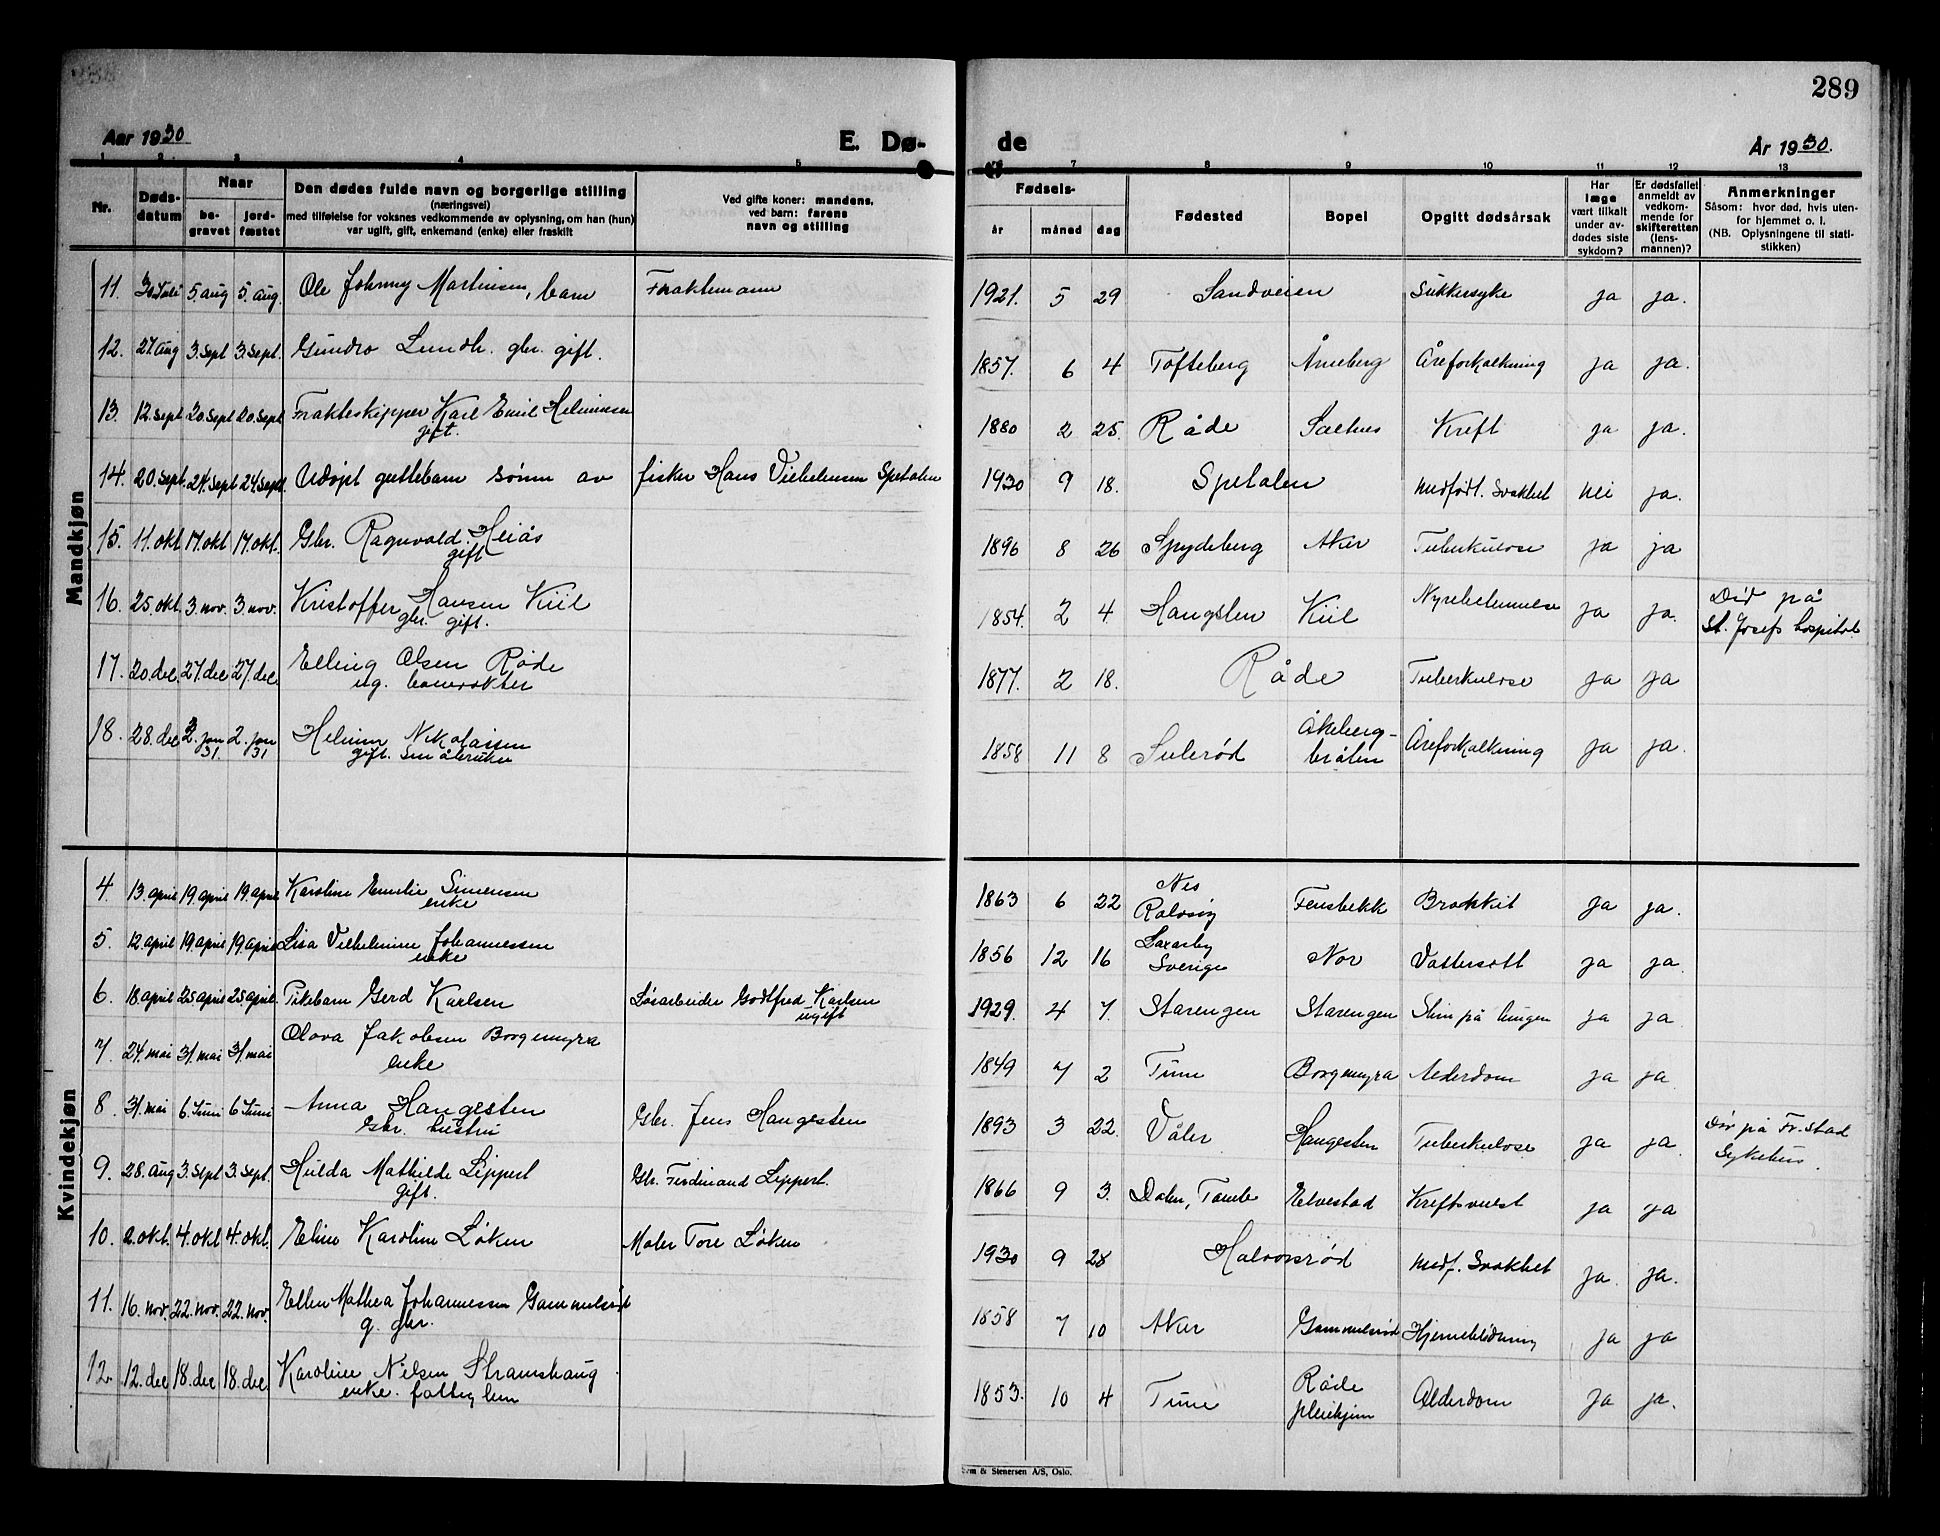 289
Aar 1930
E. Dø-
de
År 1930.
1 2 3 4 5 6 7 8 9 10 11 12 13
Nr.
Døds-
datum
Naar
be-
gravet
jord-
fæstet
Den dødes fulde navn og borgerlige stilling
(næringsvei)
med tilføielse for voksnes vedkommende av oplysning, om han (hun)
var ugift, gift, enkemand (enke) eller fraskilt
Ved gifte koner: mandens,
ved barn: farens
navn og stilling
Fødsels-
år
måned
dag
Fødested
Bopel
Opgitt dødsårsak
Har
læge
vært tilkalt
under av-
dødes siste
sykdom?
Er dødsfallet
anmeldt av
vedkom-
mende for
skifteretten
(lens-
mannen)?
Anmerkninger
Såsom: hvor død, hvis uten-
for hjemmet o. l.
(NB. Oplysningene til stati-
stikken)
Mandkjøn
11. 30 Juli 5. aug 5. aug. Ole Johnny Martinsen, barn Fraktemann 1921. 5 29 Sandveien Sukkersyke ja ja.
12. 27. aug 3. sept 3. sept. Gundro Lundh. gbr. gift. 1857. 6 4 Tofteberg Årneberg Åreforkalkning ja ja.
13. 12. sept 20. sept 20. sept Frakteskipper Karl Emil Helmersen
gift.
1880 2 25. Råde Saltnes Kreft ja ja.
14. 20. sept. 24. sept 24. sept. Udøpt guttebarn sønn av fisker Hans Vilhelmsen Spetalen 1930 9 18. Spetalen medfødt. svakhet nei ja.
15. 11. okt 17. okt 17. okt. Gbr. Ragnvald Heiås
gift
1896 8 26 Spydeberg Aker Tuberkulose ja ja
16. 25. okt. 3. nov. 3. nov. Kristoffer Hansen Kiil
gbr. gift.
1854. 2 4 Hangslen Kiil Nyrebetennelse ja ja. Død på
St. Josefs hospital
17. 20. dec. 27. dec 27. dec. Elling Olsen Røde
ug. banevokter
1877. 2 18. Råde Tuberkulose ja ja
18. 28. dec 2. jan
31. 2. jan
31 Helmer Nikolaisen
gift. Småbruker
1858 11 8 Sulerød Åkeberg-
bråten Åreforkalkning ja ja.
Kvindekjøn
4. 13. april 19 april 19. april Karoline Emilie Simensen
enke
1863 6 22 Nes
Rolvsøy Fensbekk Brokkit ja ja.
5. 12. april 19 april 19 april Lisa Vilhelmine Johannessen
enke
1856 12 16 Laxarby
Sverige Nor Vattersott ja ja.
6. 18 april 25 april 25 april. Pikebarn Gerd Karlsen Løsarbeider Godtfred Karlsen
ugift
1929. 4 7. Starengen Starengen Slim på lungen ja ja.
7. 24. mai 31. mai 31. mai Olava Jakobsen Borgemyra
enke
1849 7 2 Tune Borgemyra Alderdom ja ja.
8. 31. mai 6. Juni 6 Juni Anna Haugesten
Gbr. hustru
Gbr. Jens Haugesten 1893 3 22. Våler Haugesten Tuberkulose ja ja. Død på Fr.stad
Sykehus.
9. 28. aug 3. sept 3. sept. Hulda Mathilde Lippert
gift.
Gbr. Ferdinand Lippert. 1866 9 3. Dalen, Tomb Elvestad Kreftsvulst ja ja
10. 2. okt. 4. okt 4. okt. Eline Karoline Løken Maler Tore Løken 1930 9 28 Halvorsrød medf. svakhet ja. ja.
11. 16. nov. 22. nov. 22. nov. Ellen Mathea Johannessen Gammelsrød
g. gbr.
1858 7 10 Aker Gammelsrød Hjerneblødning ja ja
12. 12. dec 18. dec 18. dec Karoline Nilsen Stramshaug
enke. fattiglem
1853. 10 4 Tune Råde
pleiehjem Alderdom ja ja.
& Stenersen A/S, Oslo.